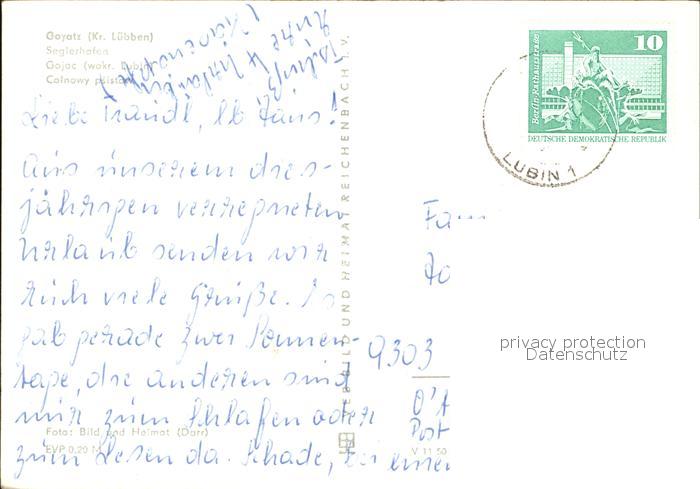 Goyatz (Kr. Lübben)
Seglerhafen
Gojac (wokr. Lubin)
Liebe Traudl, lb Hans!
Aus unserem dies-
jährigen verregneten
Urlaub senden wir
Euch viele Grüße. Es
gab gerade zwei Sonnen-
tage, die anderen sind
nur zum Schlafen oder
zum Lesen da. Schade, bei einer
Foto: Bild und Heimat (Darr)
EVP 0,20 M
VEB BILD UND HEIMAT REICHENBACH i. V.
10
Berlin, Rathausstraße
DEUTSCHE DEMOKRATISCHE REPUBLIK
LUBIN 1
Fam
9303
O'
Post
V 11 50
privacy protection
Datenschutz